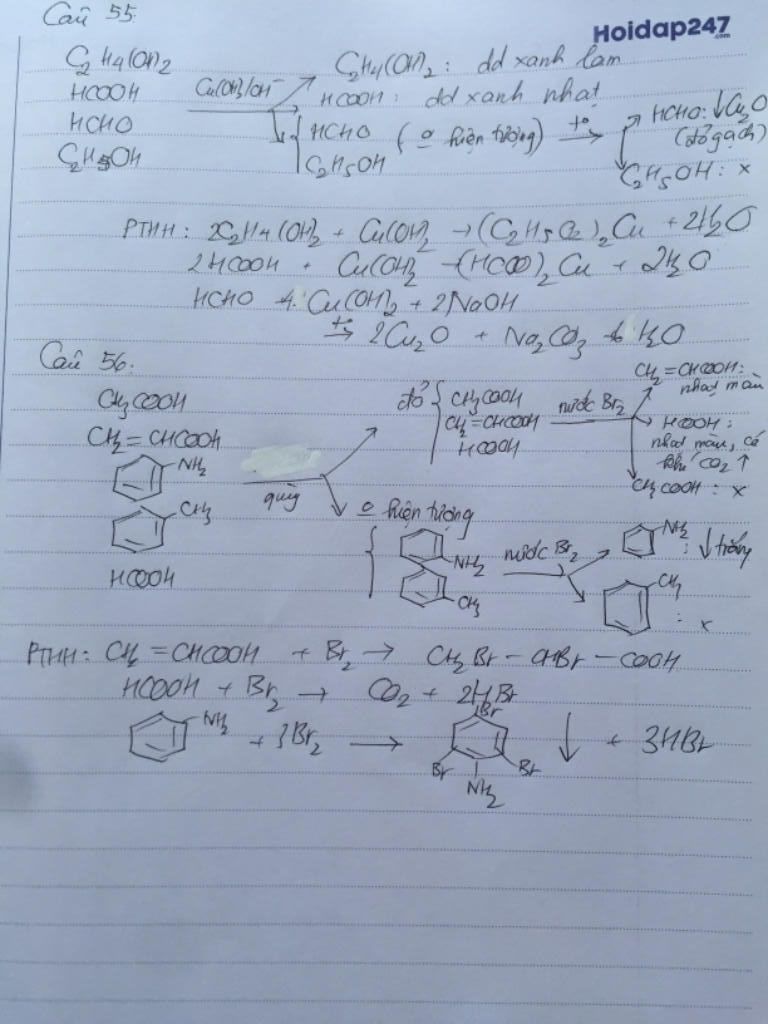 Câu 55:
Hoidap247
.com
C₂H₄(OH)₂
HCOOH
HCHO
C₂H₅OH
Cu(OH)₂/OH⁻
C₂H₄(OH)₂: dd xanh lam
HCOOH: dd xanh nhạt
HCHO
C₂H₅OH
(o hiện tượng)
t°
HCHO: ↓Cu₂O
(đỏ gạch)
C₂H₅OH: x
PTHH: 2C₂H₄(OH)₂ + Cu(OH)₂ → (C₂H₅O₂)₂Cu + 2H₂O
2HCOOH + Cu(OH)₂ → (HCOO)₂Cu + 2H₂O
HCHO + 4Cu(OH)₂ + 2NaOH
t° → 2Cu₂O + Na₂CO₃ + 6H₂O
Câu 56:
CH₃COOH
CH₂=CHCOOH
NH₂
CH₃
HCOOH
quỳ
đỏ
CH₃COOH
CH₂=CHCOOH
HCOOH
nước Br₂
CH₂=CHCOOH:
nhạt màu
HCOOH:
nhạt màu, có
khí CO₂ ↑
CH₃COOH: x
o hiện tượng
NH₂
CH₃
nước Br₂
NH₂ : ↓ trắng
CH₃ : x
PTHH: CH₂=CHCOOH + Br₂ → CH₂Br-CHBr-COOH
HCOOH + Br₂ → CO₂ + 2HBr
NH₂ + 3Br₂ → Br Br Br NH₂ ↓ + 3HBr